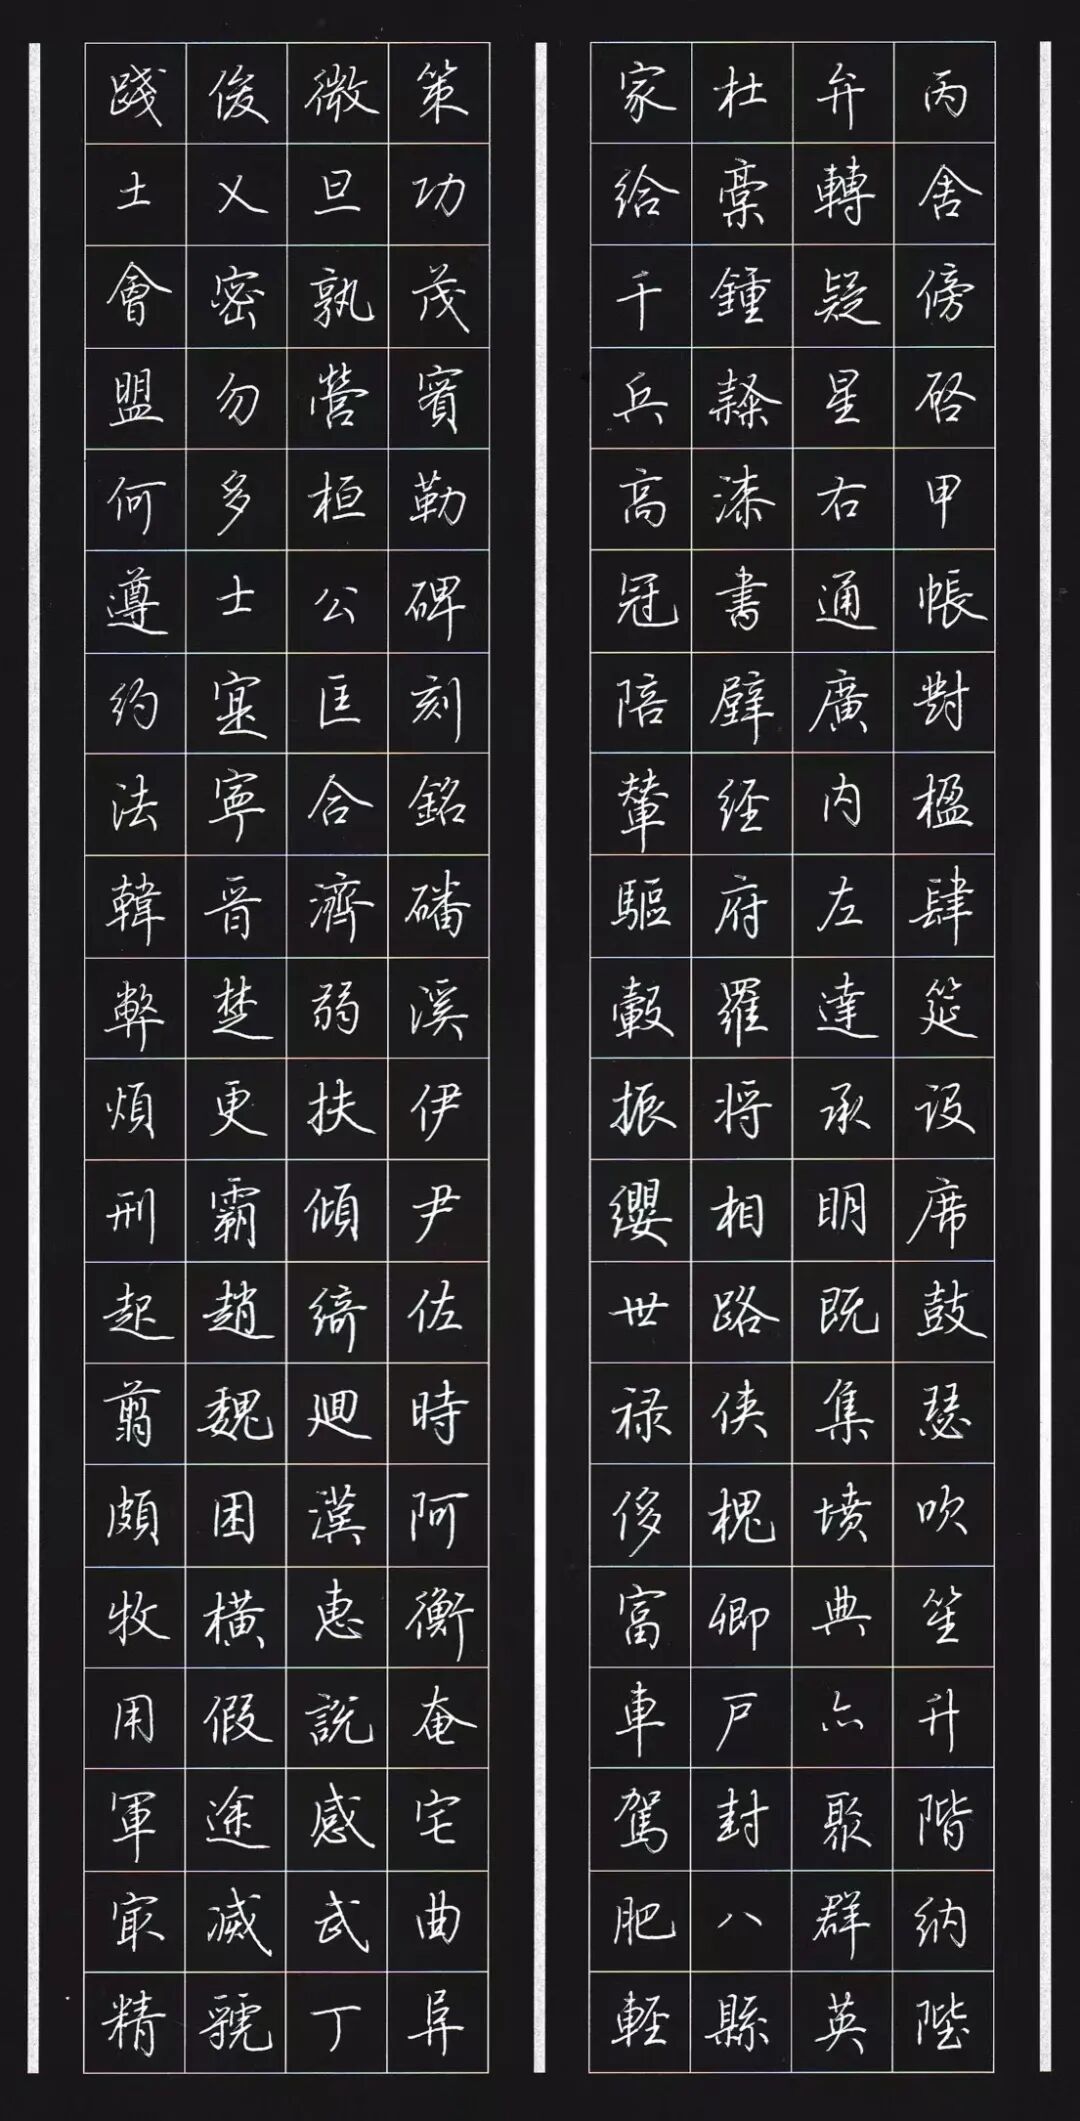 丙舍傍启甲帳對楹肆筵设席鼓瑟吹笙升階纳陛
弁轉疑星右通廣内左達承明既集墳典亦聚群英
杜稾鍾隸漆書壁经府羅将相路侠槐卿戶封八縣
家给千兵高冠陪輦驅轂振纓世禄侈富車駕肥輕
策功茂實勒碑刻銘磻溪伊尹佐時阿衡奄宅曲阜
微旦孰營桓公匡合濟弱扶傾綺迴漢惠說感武丁
俊乂密勿多士寔寧晉楚更霸趙魏困橫假途滅虢
踐土會盟何遵约法韓弊煩刑起翦頗牧用軍最精